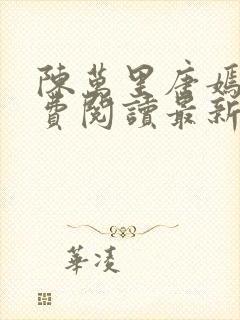 陳萬里唐嫣
費閱讀最新
華凌